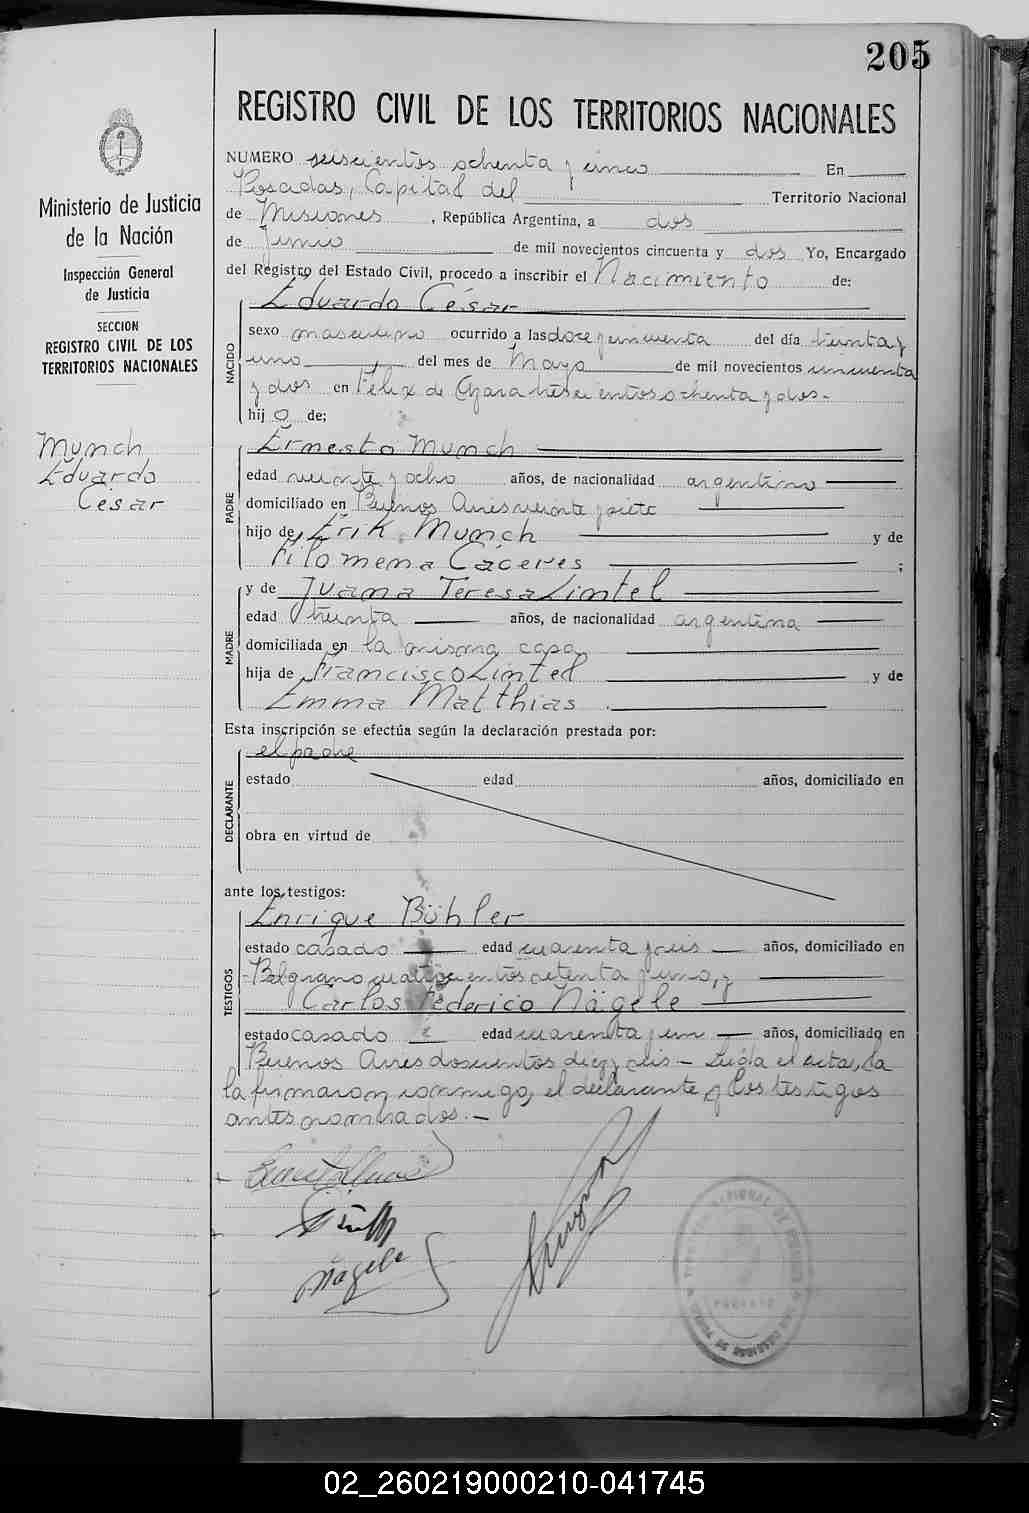 205
REGISTRO CIVIL DE LOS TERRITORIOS NACIONALES
Ministerio de Justicia
de la Nación
Inspección General
de Justicia
SECCION
REGISTRO CIVIL DE LOS
TERRITORIOS NACIONALES
Munch
Eduardo
Cesar
NUMERO seiscientos ochenta y cinco En
Posadas, Capital del Territorio Nacional
de Misiones, República Argentina, a dos
de Junio de mil novecientos cincuenta y dos Yo, Encargado
del Registro del Estado Civil, procedo a inscribir el Nacimiento de:
NACIDO
Eduardo César
sexo masculino ocurrido a las doce y cincuenta del día treinta y
uno del mes de Mayo de mil novecientos cincuenta
y dos en Félix de Azara trescientos ochenta y dos.-
hijo de;
PADRE
Ernesto Munch
edad veinte y ocho años, de nacionalidad argentino
domiciliado en Buenos Aires veinte y siete
hijo de Erik Munch y de
Filomena Cáceres ;
MADRE
y de Juana Teresa Lintel
edad treinta años, de nacionalidad argentina
domiciliada en la misma casa
hija de Francisco Lintel y de
Emma Matthias.
Esta inscripción se efectúa según la declaración prestada por:
DECLARANTE
el padre
estado edad años, domiciliado en
obra en virtud de
ante los testigos:
TESTIGOS
Enrique Bühler
estado casado edad cuarenta y seis años, domiciliado en
Belgrano cuatrocientos setenta y uno, y
Carlos Federico Nägele
estado casado edad cuarenta y un años, domiciliado en
Buenos Aires doscientos diez y seis - Leída el acta, la
la firmaron conmigo, el declarante y los testigos
antes nombrados.-
Nägele
02_260219000210-041745